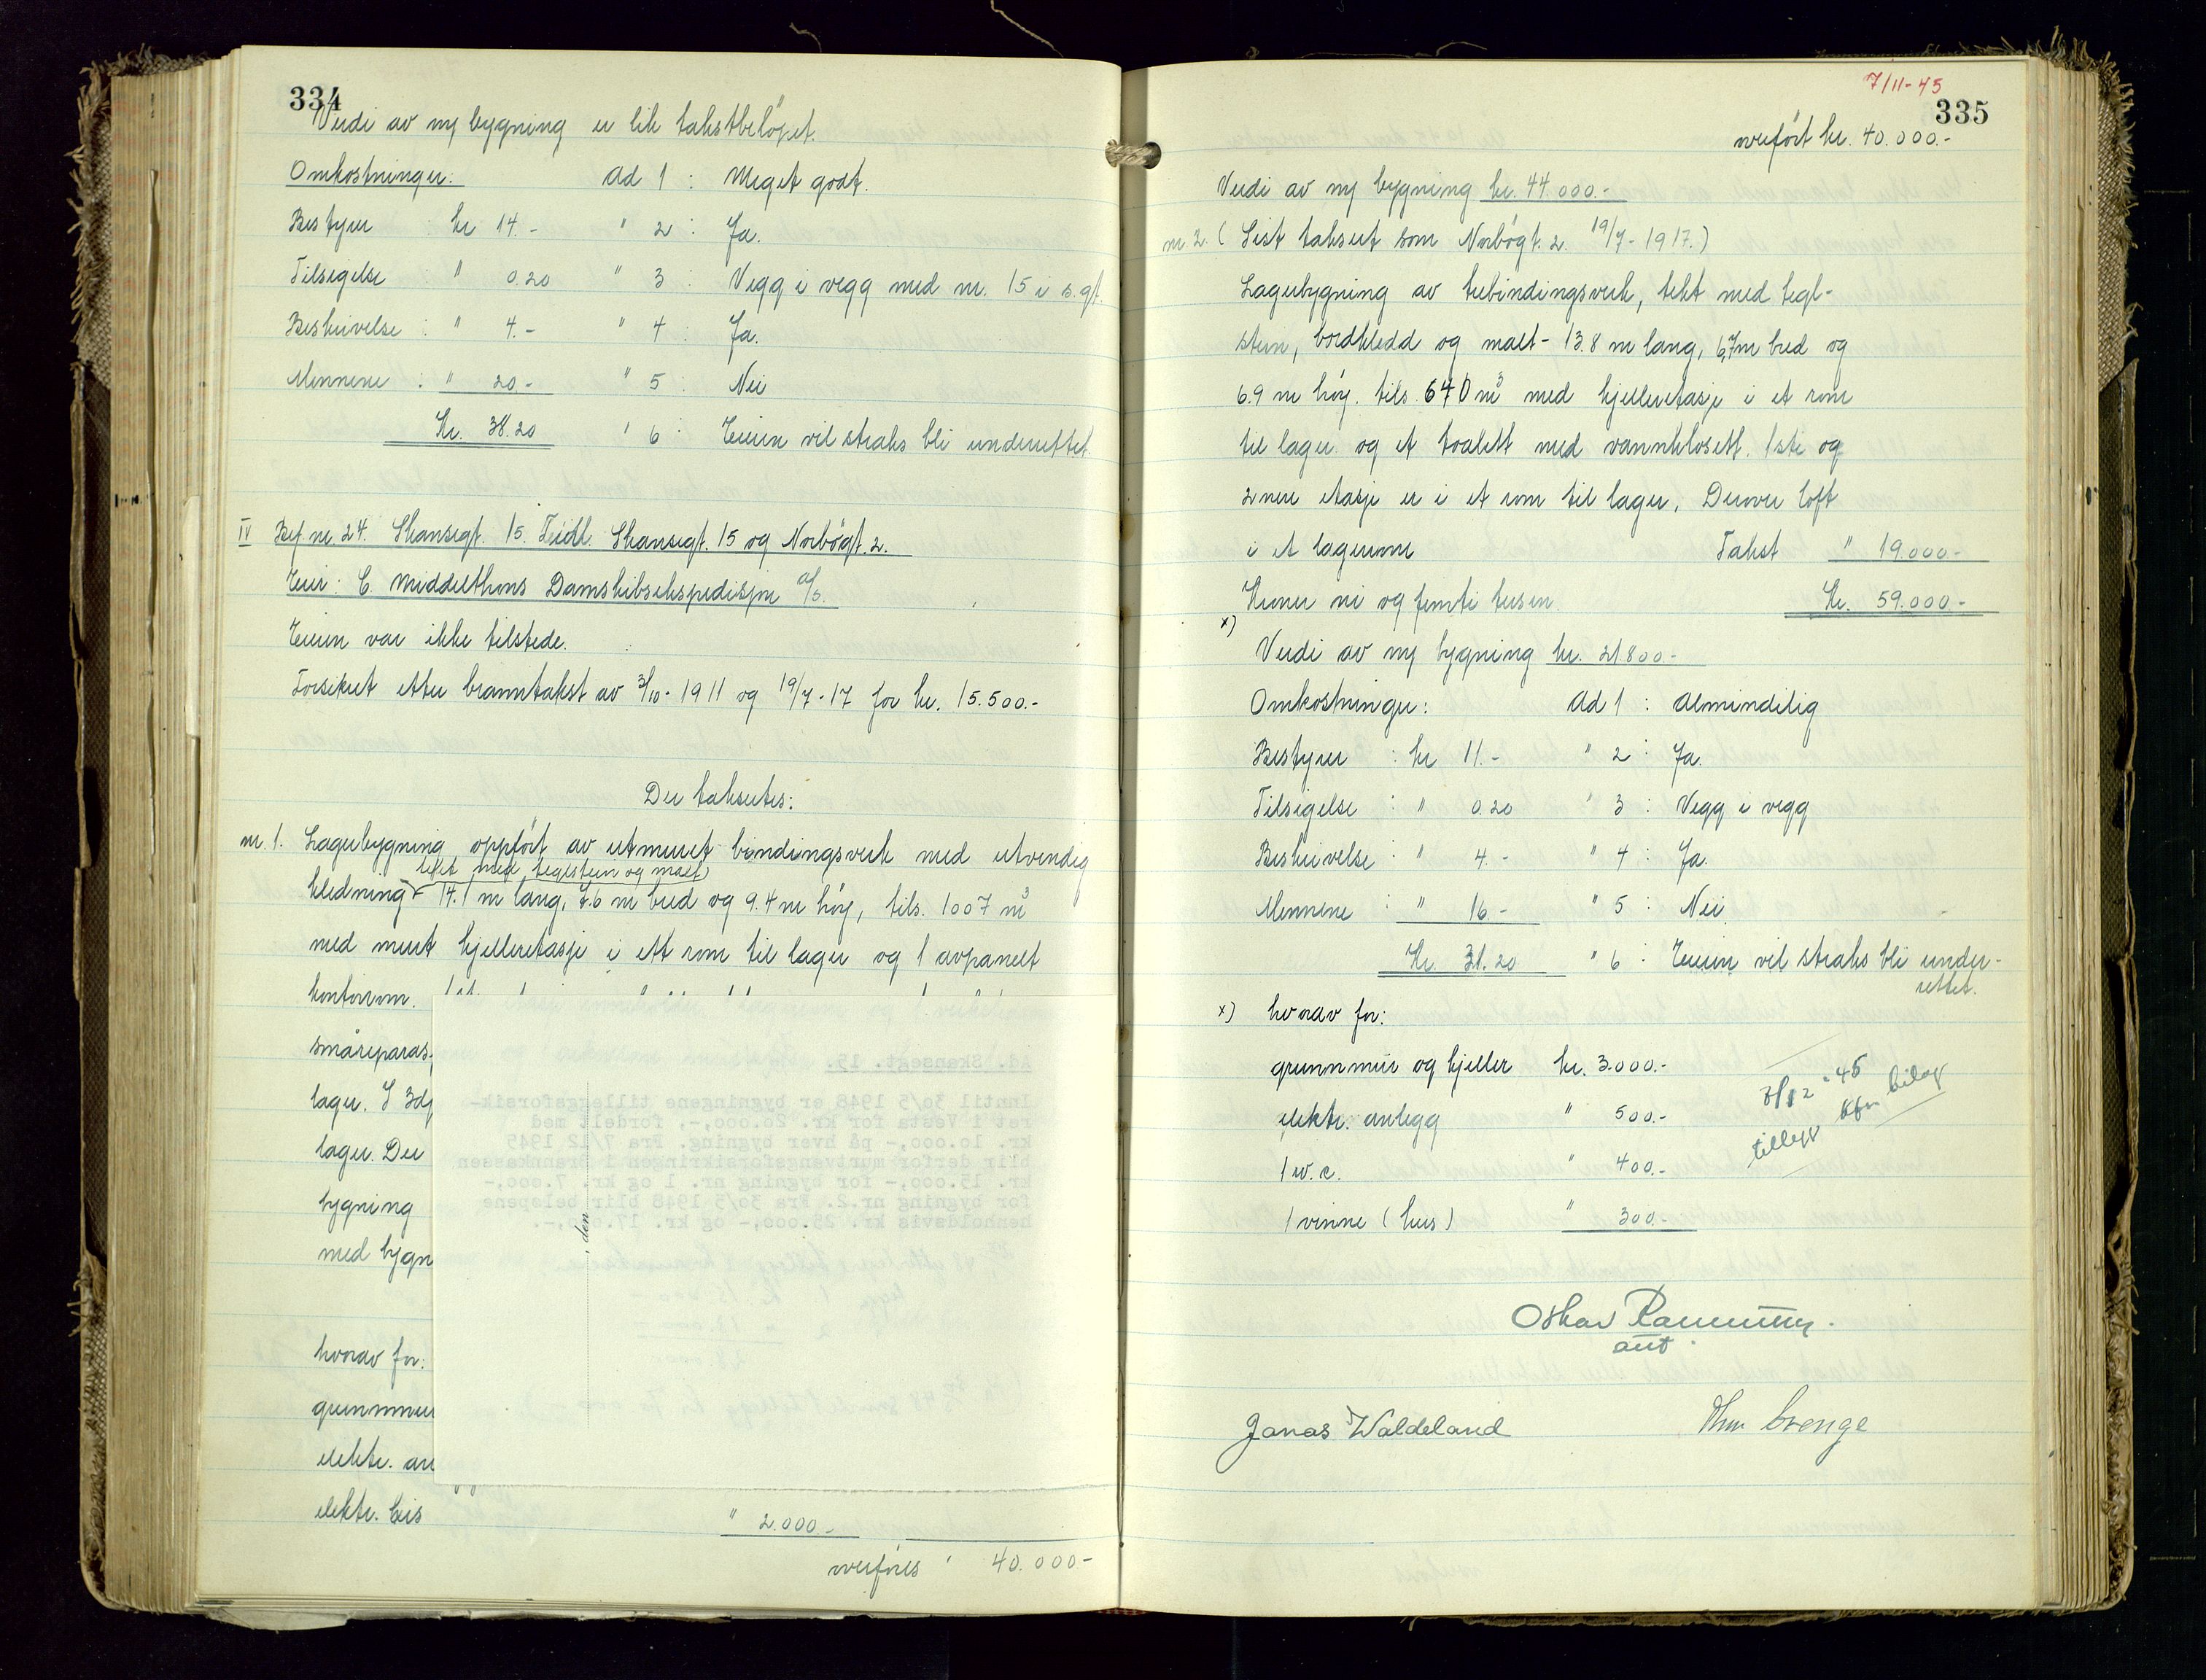 334
Verdi av ny bygning er lik takstbeløpet.
Omkostninger: Ad 1 : Meget godt.
Bestyrer kr 14.- " 2 : Ja.
Tilsigelse : " 0.20 " 3 : Vegg i vegg med nr. 15 i s.gt.
Beskrivelse : " 4.- " 4 : Ja.
Mennene : " 20.- " 5 : Nei
Kr. 38.20 " 6 : Eieren vil straks bli underrettet.
IV Bef. nr 24. Skansegt. 15. Tidl. Skansegt. 15 og Norbøgt. 2.
Eier: C. Middelthons Damskibsekspedisjon a/s.
Eieren var ikke tilstede.
Forsikret etter branntakst av 3/10-1911 og 19/7-17 for kr. 15.500.-
Der takseres:
nr. 1. Lagerbygning oppført av utmuret bindingsverk med utvendig
tekt med teglstein og malt
kledning 14.1 m lang, 7.6 m bred og 9.4 m høy, tils. 1007 m³
med murt kjelleretasje i ett rom til lager og 1 avpanelt
kontorrom.
småreparas.
lager. I 3dj
lager. Der
bygning
med bygn
hvorav for:
grunnmur
elektr. an
elektr. heis " 2.000.-
overføres " 40.000-
Ad. Skansegt. 15.
Inntil 30/5 1948 er bygningene tilleggsforsik-
ret i Vesta for kr. 20.000,-, fordelt med
kr. 10.000,- på hver bygning. Fra 7/12 1945
blir derfor murtvangsforsikringen i Brannkassen
kr. 15.000,- for bygning nr. 1 og kr. 7.000,-
for bygning nr.2. Fra 30/5 1948 blir beløpene
henholdsvis kr. 25.000,- og kr. 17.000,-.
, den
7/11-45
335
overført kr. 40.000.-
Verdi av ny bygning kr. 44.000.-
nr. 2. ( Sist taksert som Norbøgt. 2. 19/7-1917.)
Lagerbygning av trebindingsverk, tekt med tegl-
stein, bordkledd og malt - 13.8 m lang, 6,7m bred og
6.9 m høy. tils. 640 m³ med kjelleretasje i et rom
til lager og et toalett med vannklosett. 1ste og
2nen etasje er i et rom til lager. Derover loft
i et lagerrom Takst " 19.000.-
Kroner ni og femti tusen Kr. 59.000.-
x)
Verdi av ny bygning kr. 21.800.-
Omkostninger: Ad 1 : Almindelig
Bestyrer : kr 11.- " 2 : Ja.
Tilsigelse : " 0.20 " 3 : Vegg i vegg
Beskrivelse : " 4.- " 4 : Ja.
Mennene : " 16.- " 5 : Nei
Kr. 31.20 " 6 : Eieren vil straks bli under-
rettet.
x) hvorav for:
grunnmur og kjeller kr. 3.000.-
elektr. anlegg " 500.-
1 w.c. " 400.-
1 vinne (hus) " 300.-
7/12-45
tillegg bilag
Oskar
Jonas Waldeland